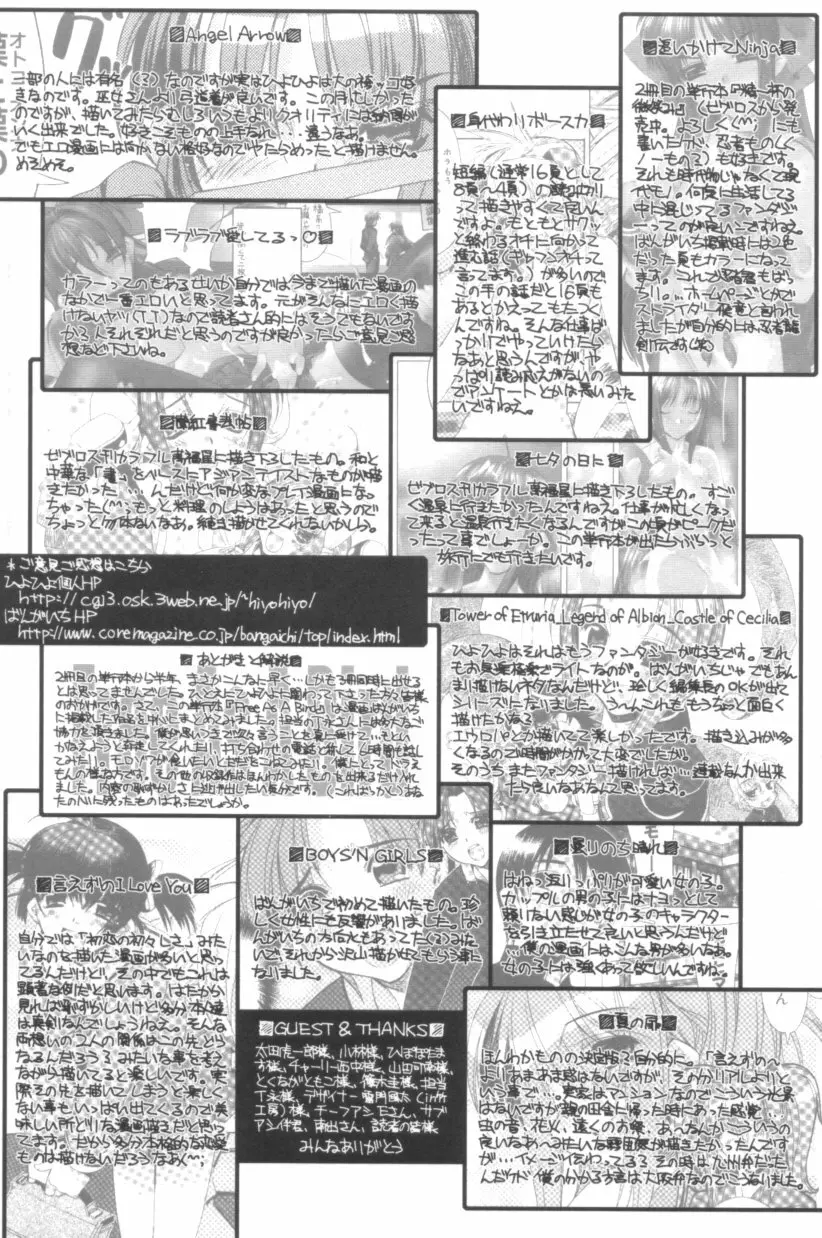 Angel Arrow
一部の人には有名(?)なのですが実はひよひよは大の袴ッコ好
きなのです。巫女さんより弓道着が良いです。この月忙しかった
のですが、描いてみたらむしろいつもよりクオリティには納得が
いく出来でした。好きこそものの上手なれ…違うなぁ。
でもエロ漫画には向かない格好なのでやたらめったと描けません。
めそめそ。
追いかけてNinja
2冊目の単行本『精一杯の
売中。よろしく(^^;)にも
書いたが、忍者もの(くノ
一もの?)も好きです。
それも時代物じゃなくて現
代モノ。何食に生活してる
中に混じってるファンタジ
ーってのが良いですねえ。
ばんがいち掲載時には2色
だった頁もカラーになって
ます。これで忍者君もばっ
ちり。…ホームページとかで
ストライダー飛竜と言われ
ましたが自分的には忍者龍
剣伝です(笑)
身代わりボースカ
短編(通常16頁として
8頁~4頁)の
って描きやすくて良いん
ですよ。もともとサクッ
と終わるオチに向かって
進む話(ギャフンオチって
言ってます。)が多いので
この手の話だと16頁も
あるとかえってもたつく
んですね。そんな仕事ば
っかりでやっていけたら
なぁと思うんですが、や
っぱり読みごたえがないの
でアンケートとかは悪いみた
いですねえ。
ラブラブ愛してるっ♡
カラーってのもあるせいか自分では今まで描いた漫画の
なかで一番エロいと思ってます。元がそんなにエロく描
けないヤツ(T.T)なので読者さん的にはそうでもないで
かも?んそれぞれだと思うのですが良かったらご意見ご感
想など下さいね。
ゼブロス刊カラフル萬福星に描き下ろしたもの。和と
中華な「書」をベースにアジアンテイストなものが描
きたかった……んだけど何か変なプレイ漫画にな。
ちゃった(^^;もっと料理のしようはあったと思うので
ちょっと勿体ないなあ。続き描かせてくれないかしら。
七夕の日に
ゼブロス刊カラフル萬福星に描き下ろしたもの。すご
く温泉に行きたかったんですねえ。仕事が忙しくなっ
て来ると温泉行きたくなるんですがこの頃がピークだ
ったって事でしょーか。この単行本が出たらぶらっと
旅行にでも行きたいです。
*ご意見ご感想はこちら
ひよひよ個人HP
http://cgi3.osk.3web.ne.jp/~hiyohiyo/
ばんがいちHP
http://www.coremagazine.co.jp/bangaichi/top/index.html
Tower of Etruria_Legend of Albion_Castle of Cecilia
ひよひよはそれはもうファンタジーが好きです。それ
もお気楽極楽でライトなのが。ばんがいちじゃでもあん
まり描けないネタなんだけど、珍しく編集長のOKが出て
シリーズになりました。う~んこれももうちょっと面白く
描けたかな?
エウロパとか描いてて楽しかったです。描き込みが多
くなるので時間がかかって大変でしたが。
そのうちまたファンタジー描ければ…連載なんか出来
たら良いなあなんて思ってます。
あとがきと解説
2冊目の単行本から半年、まさかこんなに早く…しかも3冊同時に出せる
とは思ってませんでした。ひとえにひよひよに関わって下さった方々皆様
のおかげです。さて、この単行本『Free As A Bird』は漫画ばんがいち
に掲載した作品を中心にまとめてみました。担当のT永さんには多大なご
協力を頂きました。僕が思いつきで変な言うことを真に受けて…もとい
かなえようと奔走してくれたり、打ち合わせの電話と称して6時間も話し
てみたり、モロゾフが食いたいとただをこねてみたり。僕にとってドラえ
もんの様な方です。その他の収録作はほんわかしたものを出来るだけ入れ
ました。内容の恥ずかしさに逃げ出したい気分です。(こればっかし)あな
たのNiに残ったものはあったでしょうか。
言えずのI Love You
自分では「初恋の初々しさ」みた
いなのを描いた漫画が多いと思っ
てるんだけど、その中でもこれは
顕著な例だと思います。はたから
見れば恥ずかしいけど多分本人達
は真剣なんでしょうねえ。そんな
両想いの2人の関係はこの先どう
なるんだろう?みたいな事を考え
ながら描いてると楽しいです。実
際その先を描いてしまうと楽しく
ない事もいっぱい出てくるので美
味しい所どりな漫画描きだと思っ
てます。だから多分本格的な恋愛
ものは描けないだろうなあ(^^;
BOYS'N GIRLS
ばんがいちで初めて描いたもの。珍
しく女性にも反響がありました。ば
んがいちの方向にもあってた(?)みた
いで、それから沢山描かせてもらう事に
なりました。
怒りのち晴れ
はねっ返りっぷりが可愛い女の子。
カップルの男の子にはナヨっとして
頼りない感じが女の子のキャラクター
を引き立たせて良いと思うんだけど
…僕の漫画にはこんな男が多いなあ。
女の子には強くあって欲しいんですね。
GUEST & THANKS
太田虎一郎様、小林様、ひぽぽたま
す様、チャーリー西中様、山田可南様、
とくながともこ様、橋本圭様、担当
T永様、デザイナー雷門風太(inft
工房)様、チーフアシTさん、サブ
アシI作君、南出さん、読者の皆様
みんなありがとう
夏の扉
ほんわかものの決定版?自分的に。「言えずの~」
よりあまあま感はないですが、その分リアルよりと
いう事で…。実家はマンションなのでこういう光景
はないですが親の田舎に帰った時にあった感覚…
虫の音、花火、遠くのお祭、あ~なんかこういうの
良いなあ~みたいな雰囲気が描きたかったんです
が…イメージ伝わってる?その時は九州弁だった
んだけど僕のわかる方言は大阪弁なのでこうなりました。